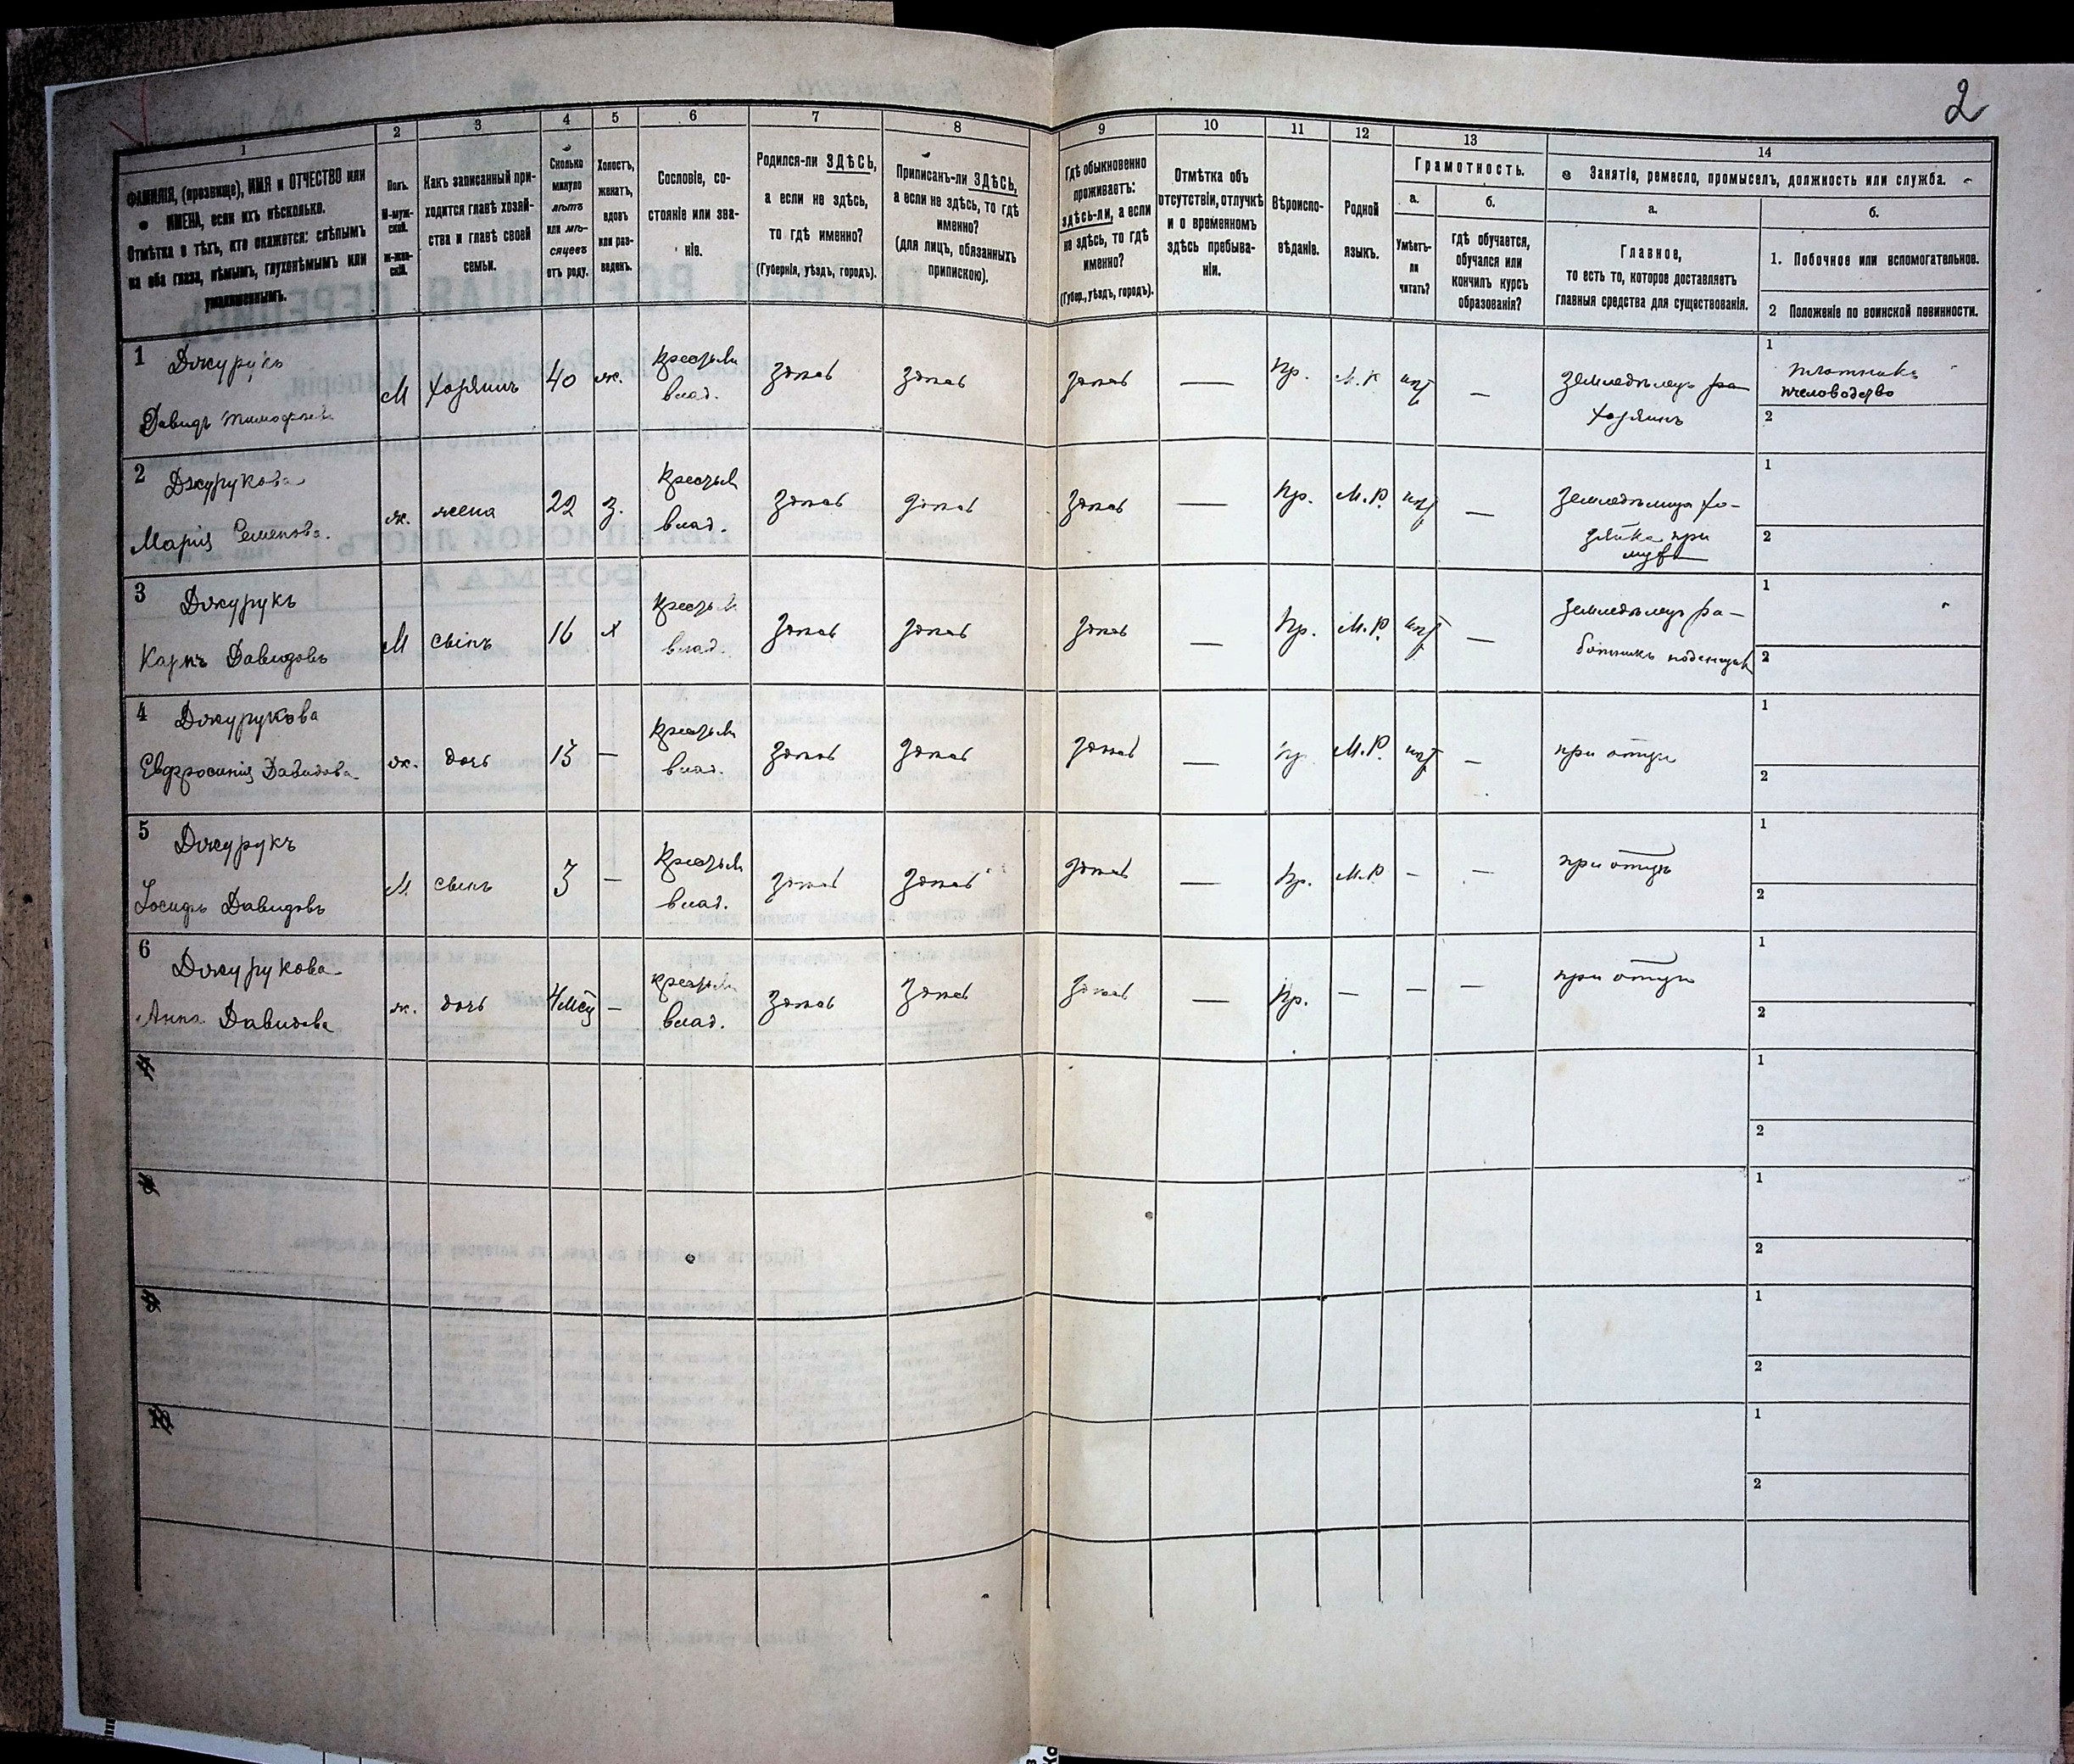 2
1
2
3
4
5
6
7
8
9
10
11
12
13
14
ФАМИЛІЯ, (прозвище), ИМЯ и ОТЧЕСТВО или
ИМЕНА, если ихъ нѣсколько.
Отмѣтка о тѣхъ, кто окажется: слѣпымъ
на оба глаза, нѣмымъ, глухонѣмымъ или
умалишеннымъ.
Полъ.
М-муж-
ской.
ж-жен-
скій.
Какъ записанный при-
ходится главѣ хозяй-
ства и главѣ своей
семьи.
Сколько
минуло
лѣтъ
или мѣ-
сяцевъ
отъ роду.
Холостъ,
женатъ,
вдовъ
или раз-
веденъ.
Сословіе, со-
стояніе или зва-
ніе.
Родился-ли ЗДѢСЬ,
а если не здѣсь,
то гдѣ именно?
(Губернія, уѣздъ, городъ).
Приписанъ-ли ЗДѢСЬ,
а если не здѣсь, то гдѣ
именно?
(для лицъ, обязанныхъ
припискою).
Гдѣ обыкновенно
проживаетъ:
здѣсь-ли, а если
не здѣсь, то гдѣ
именно?
(Губер., уѣздъ, городъ).
Отмѣтка объ
отсутствіи, отлучкѣ
и о временномъ
здѣсь пребыва-
ніи.
Вѣроиспо-
вѣданіе.
Родной
языкъ.
Грамотность.
а.
Умѣетъ-
ли
читать?
б.
гдѣ обучается,
обучался или
кончилъ курсъ
образованія?
Занятіе, ремесло, промыселъ, должность или служба.
а.
Главное,
то есть то, которое доставляетъ
главныя средства для существованія.
б.
1. Побочное или вспомогательное.
2 Положеніе по воинской повинности.
1 Джурукъ
Давидъ Тимофѣевъ
М хозяинъ 40 ж. влад. здѣсь здѣсь здѣсь — Пр. М.Р. нѣтъ —
хозяинъ
1 плотникъ
пчеловодство
2
2 Джурукова
Марія Семенова.
ж. жена 22 з. влад. здѣсь здѣсь здѣсь — Пр. М.Р. нѣтъ —
при
мужѣ
1
2
3 Джурукъ
Карпъ Давидовъ
М сынъ 16 х влад. здѣсь здѣсь здѣсь — Пр. М.Р. нѣтъ —
земледѣлецъ ра-
ботникъ
1
2
4 Джурукова
Евфросинія Давидова
ж. дочь 13 — влад. здѣсь здѣсь здѣсь — Пр. М.Р. нѣтъ — при отцѣ
1
2
5 Джурукъ
Іосифъ Давидовъ
М сынъ 3 — влад. здѣсь здѣсь здѣсь — Пр. М.Р. — — при отцѣ
1
2
6 Джурукова
Анна Давидова
ж. дочь 4 мѣс — влад. здѣсь здѣсь здѣсь — Пр. — — — при отцѣ
1
2
7
1
2
8
1
2
9
1
2
10
1
2